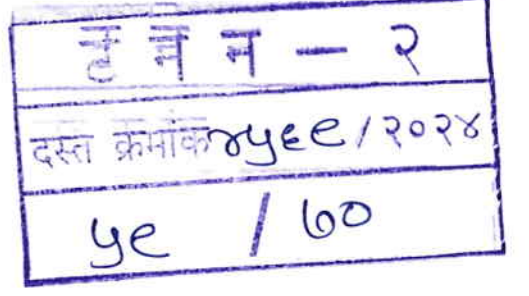 ट न न — २
दस्त क्रमांक ४५६९/२०२४
५९ / ७०